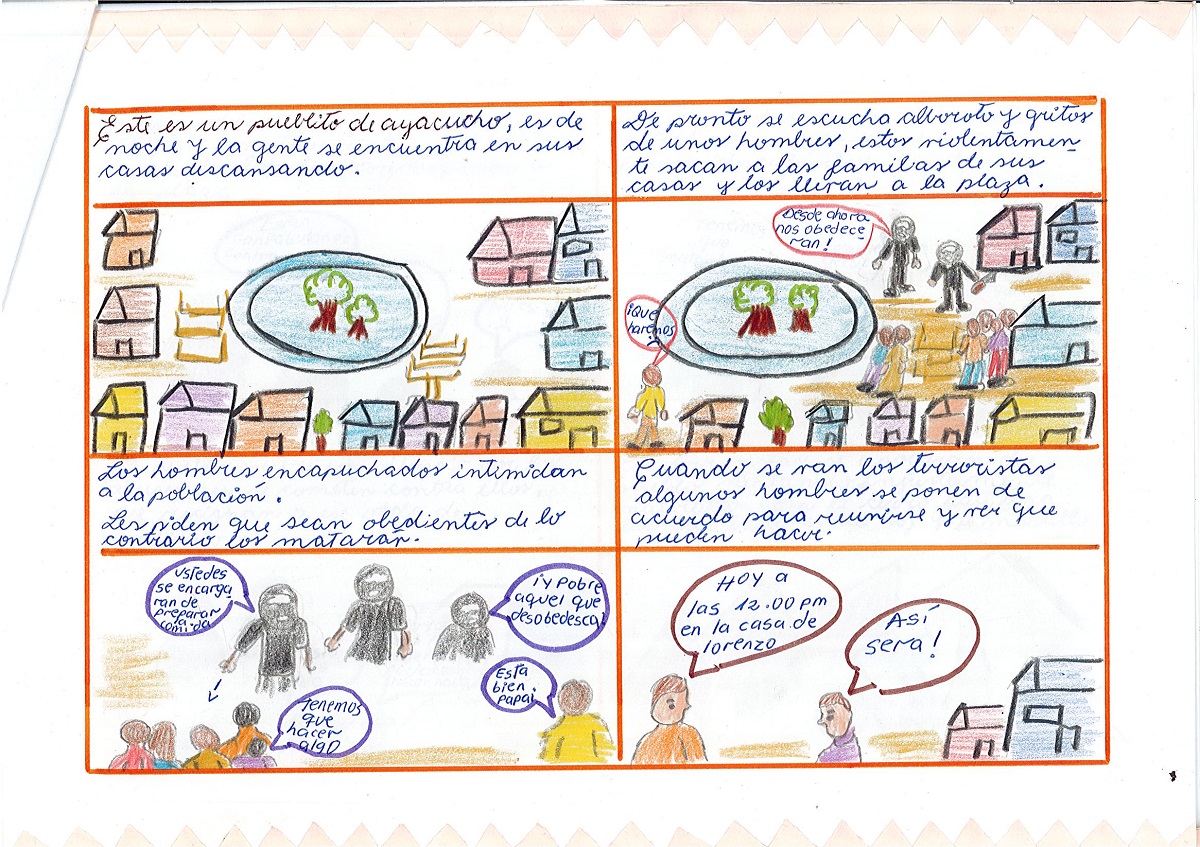 Este es un pueblito de ayacucho, es de
noche y la gente se encuentra en sus
casas discansando.
De pronto se escucha alboroto y gritos
de unos hombres, estos violentamen-
te sacan a las familas de sus
casas y los llevan a la plaza.
Desde ahora
nos obedece-
ran!
¡Que
haremos
Los hombres encapuchados intimidan
a la población.
Les piden que sean obedientes de lo
contrario los mataran.
Cuando se van los terroristas
algunos hombres se ponen de
acuerdo para reunirse y ver que
pueden hacer.
Ustedes
se encarga
ran de
preparar
la
comida
¡y pobre
aquel que
desobedesca!
Esta
bien.
papai
Tenemos
que
hacer
algo
Hoy a
las 12.00 pm
en la casa de
lorenzo
Así
sera!